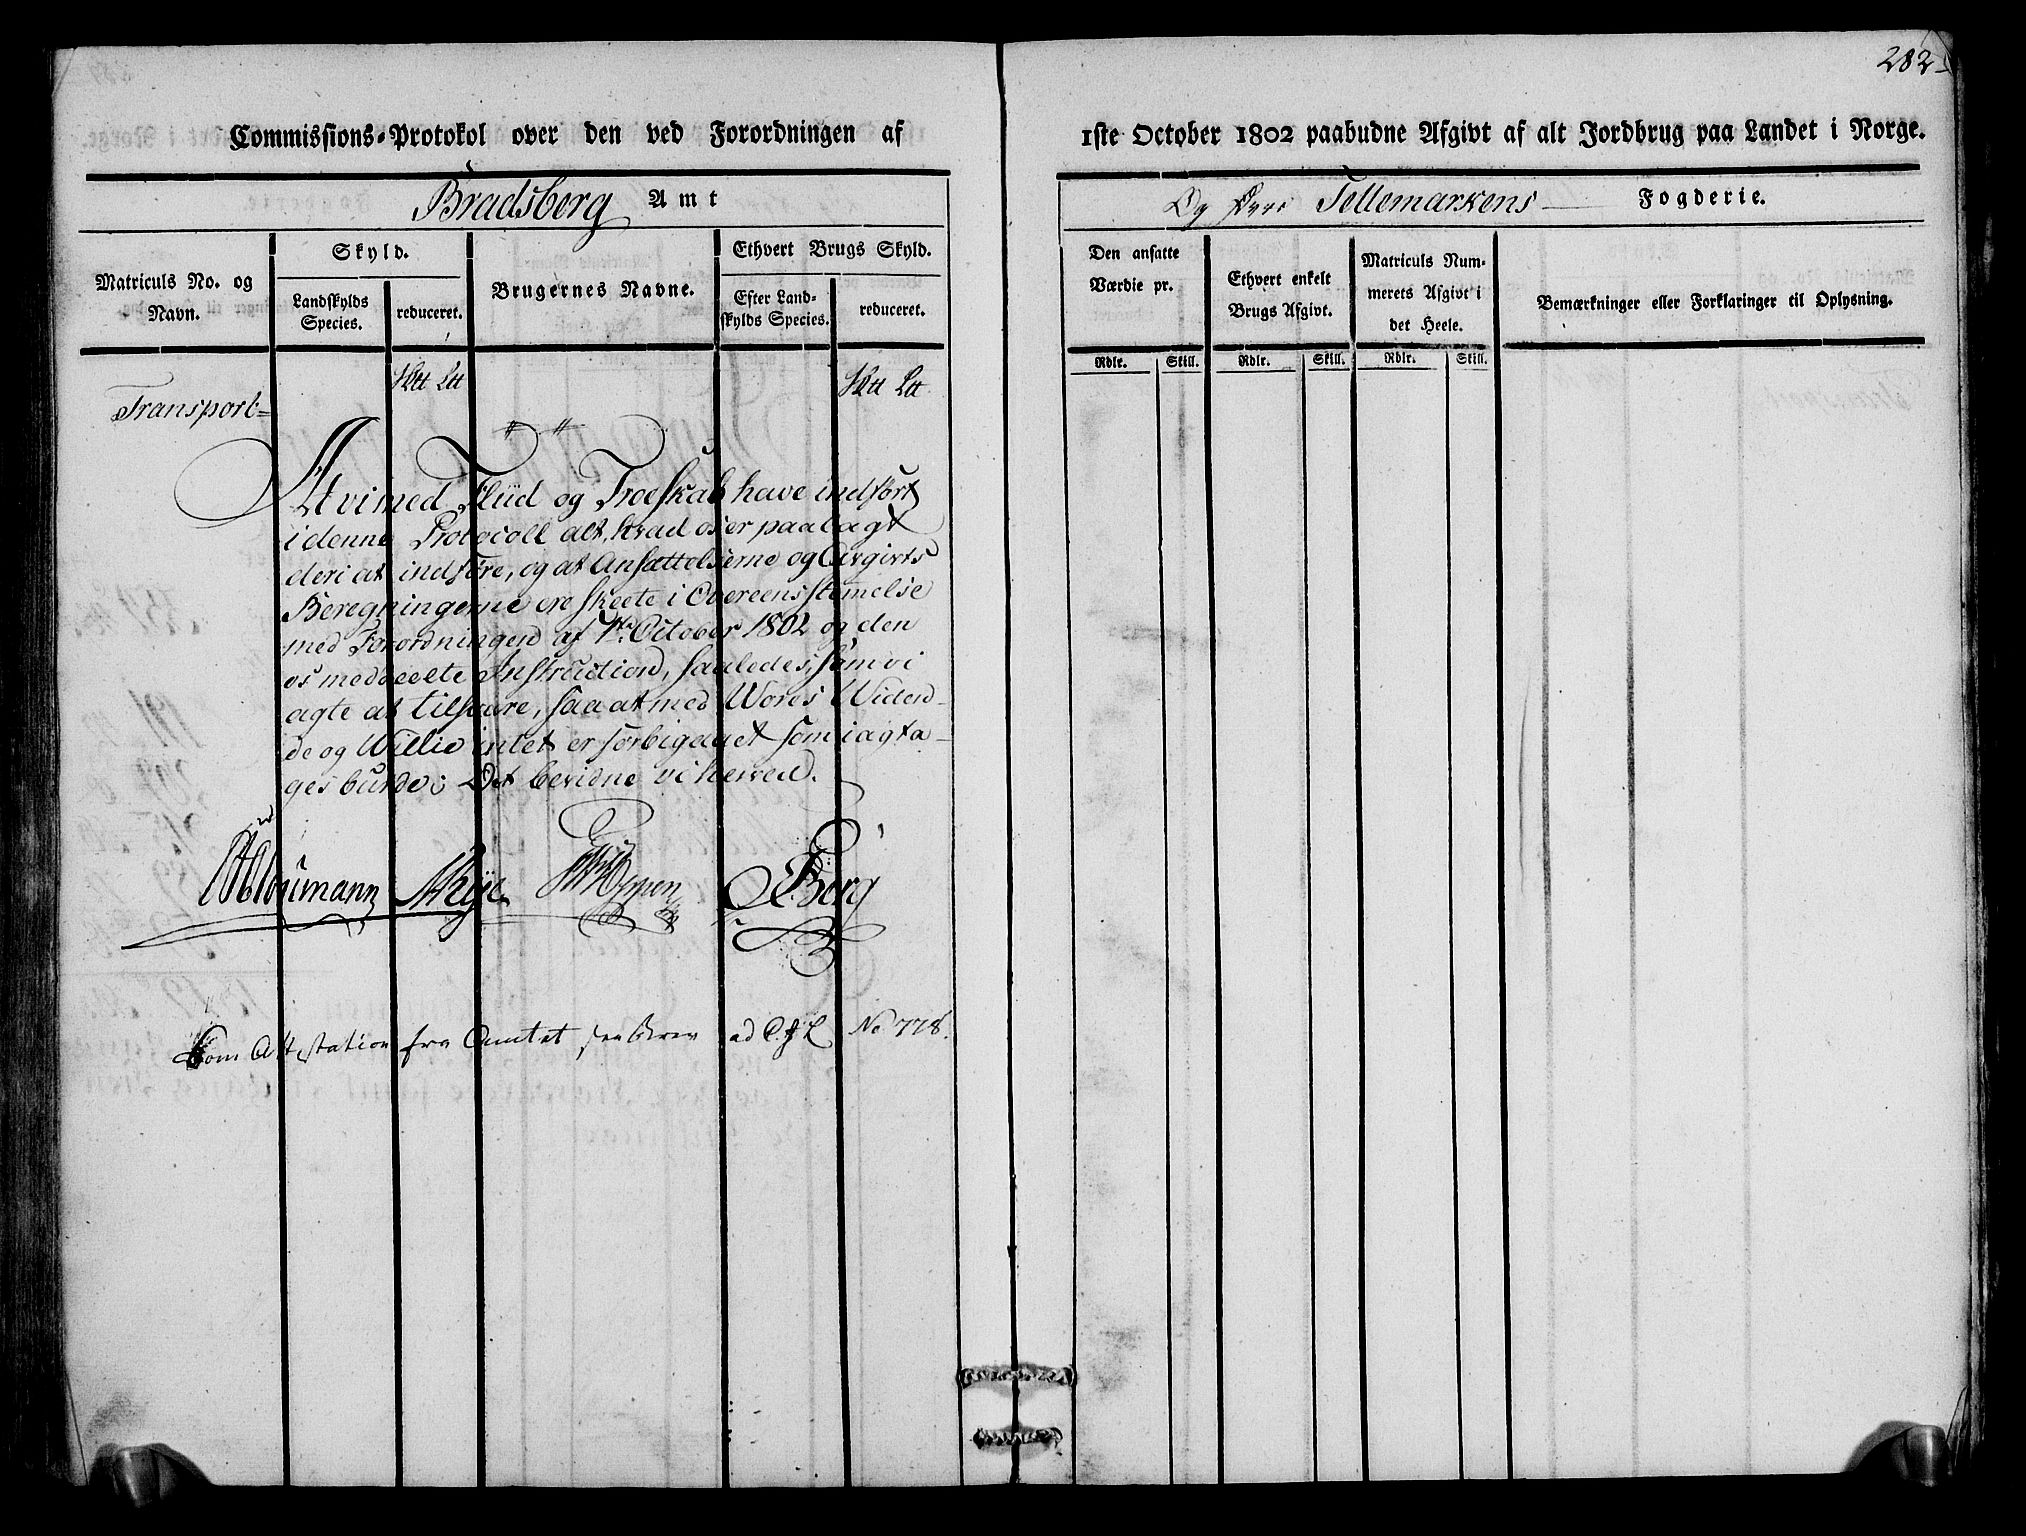 282
Commissions-Protokol over den ved Forordningen af 1ste October 1802 paabudne Afgivt af alt Jordbrug paa Landet i Norge.
Bradsberg Amt
Og Tellemarkens Fogderie.
Matriculs No. og Navn.
Skyld.
Landskylds Species.
reduceret.
Brugernes Navne.
Ethvert Brugs Skyld.
Efter Landskylds Species.
reduceret.
Den ansatte Værdie pr.
Ethvert enkelt Brugs Afgivt.
Matriculs Nummerets Afgivt i det Heele.
Bemærkninger eller Forklaringer til Oplysning.
Rdlr. Skill. Rdlr. Skill. Rdlr. Skill.
Transport
At vi med Fliid og Troeskab have indført
i denne Protocoll alt, hvad os er paalagt
deri at indføre, og at Ansættelserne og Avgivts
Beregningerne ere skeete i Overeensstemelse
med Forordningen af 1ste October 1802 og den
os meddeelte Instruction, saaledes, som vi
agte at tilsvare, saa at med Wores Widen-
de og Willie intet er forbigaaet som iagta-
ges burde; Det bevidne vi herved.
Berg
Som Attestation fra Amtet No 778.